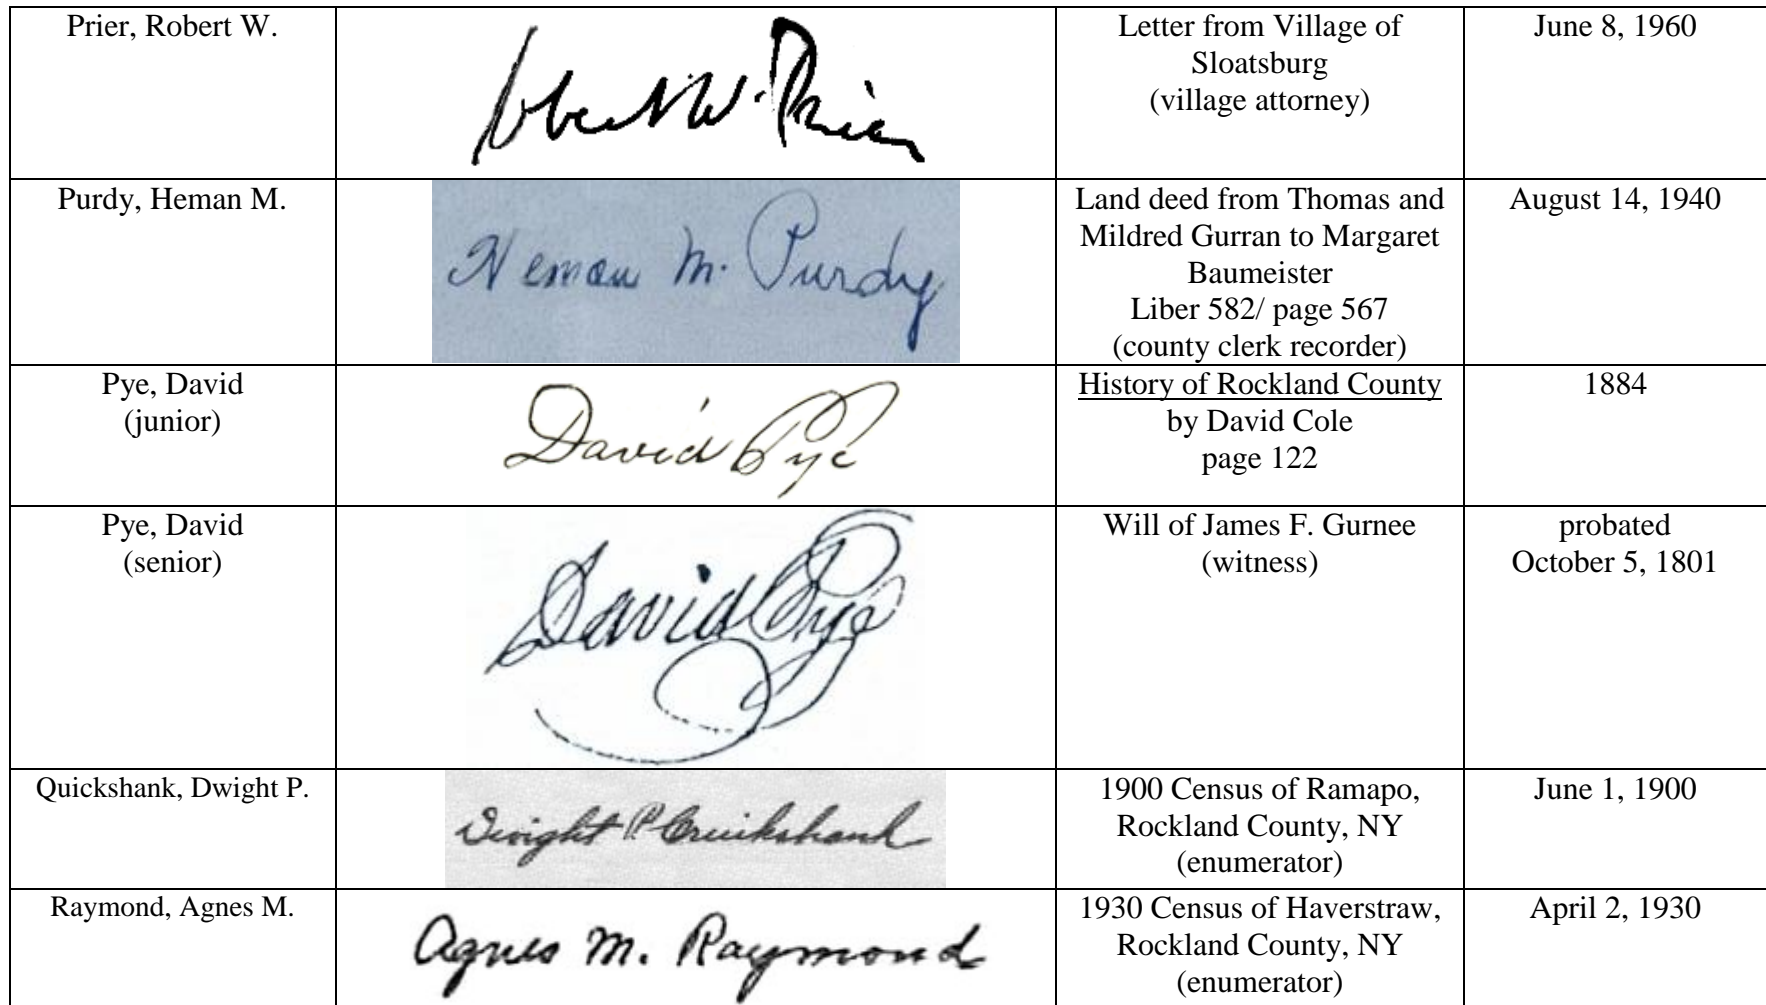 Prier, Robert W.
obert W. Prier
Letter from Village of
Sloatsburg
(village attorney)
June 8, 1960
Purdy, Heman M.
Heman M. Purdy
Land deed from Thomas and
Mildred Gurran to Margaret
Baumeister
Liber 582/ page 567
(county clerk recorder)
August 14, 1940
Pye, David
(junior)
David Pye
History of Rockland County
by David Cole
page 122
1884
Pye, David
(senior)
David Pye
Will of James F. Gurnee
(witness)
probated
October 5, 1801
Quickshank, Dwight P.
Dwight P. Cruikshank
1900 Census of Ramapo,
Rockland County, NY
(enumerator)
June 1, 1900
Raymond, Agnes M.
Agnes M. Raymond
1930 Census of Haverstraw,
Rockland County, NY
(enumerator)
April 2, 1930